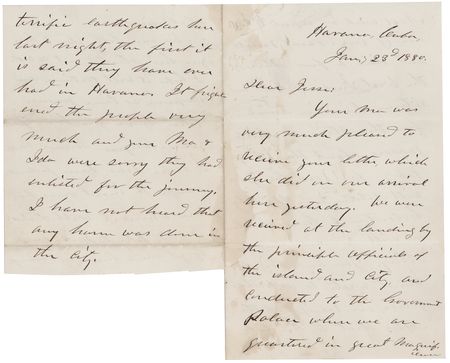 Havana, Cuba
Jany 23d 1880.
Dear Jesse;
Your Ma was
very much pleased to
receive your letter which
she did on our arrival
here yesterday. We were
received at the landing by
the principle officials of
the island and City and
conducted to the Governors
Palace where we are
quartered in great Magnif-
icence
terrific earthquakes here
last night, the first it
is said they have ever
had in Havana. It fright-
ened the people very
much and your Ma &
Ida were sorry they had
enlisted for the journey.
I have not heard that
any harm was done in
the city.